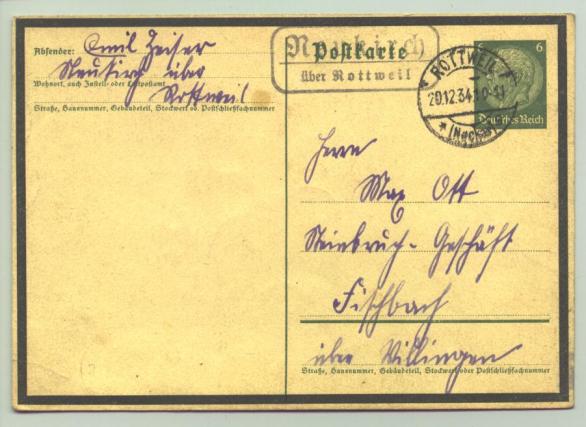 Absender: Emil Zeiser
Neukirch über
Wohnort, auch Zustell- oder Leitpostamt
Rottweil
Straße, Hausnummer, Gebäudeteil, Stockwerk od. Postschließfachnummer
Postkarte
Neukirch
über Rottweil
ROTTWEIL
20.12.34
(Neckar)
6
Deutsches Reich
Herrn
Max Ott
Steinbruch-Geschäft
Fischbach
über Villingen
Straße, Hausnummer, Gebäudeteil, Stockwerk oder Postschließfachnummer